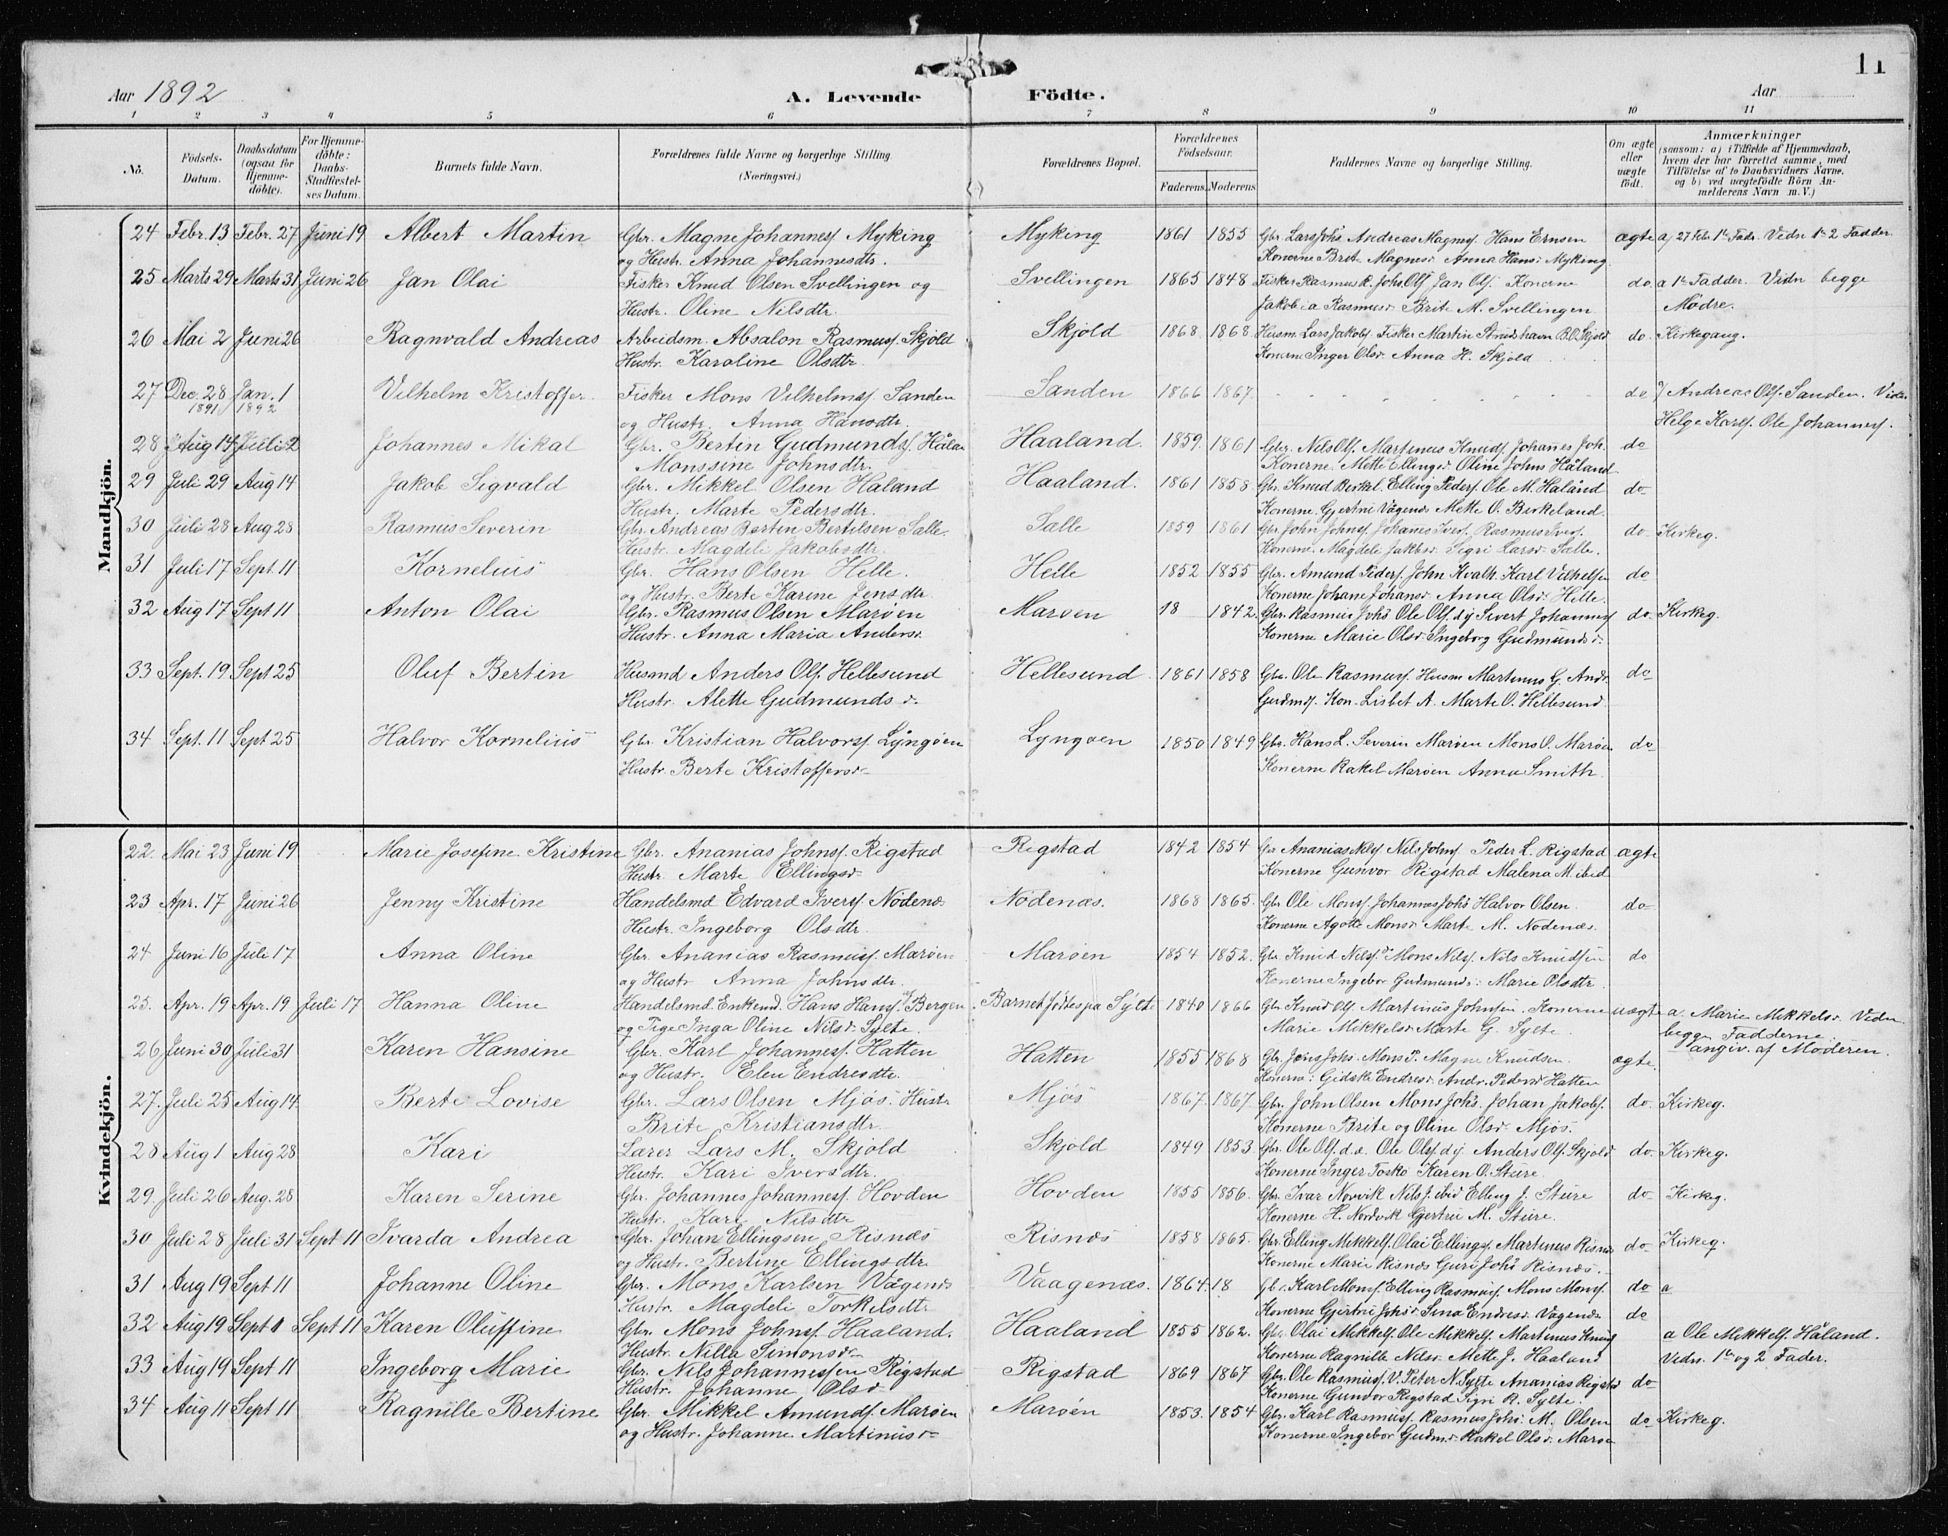 11
Aar 1892 A. Levende Födte. Aar
1 2 3 4 5 6 7 8 9 10 11
No. Födsels-Datum. Daabsdatum (ogsaa for Hjemme-döbte). For Hjemme-döbte: Daabs-Stadfæstel-ses Datum. Barnets fulde Navn. Forældrenes fulde Navne og borgerlige Stilling. (Næringsvei.) Forældrenes Bopæl. Forældrenes Födselsaar. Faderens. Moderens. Faddernes Navne og borgerlige Stilling. Om ægte eller uægte födt. Anmærkninger (saasom: a) i Tilfælde af Hjemmedaab, hvem der har forrettet samme, med Tilföielse af to Daabsvidners Navne, og b) ved uægtefödte Börn An-melderens Navn m. V.)
Mandkjön.
24 Febr. 13 Febr. 27 Juni 19 Albert Martin Gbr. Magne Johannesf Myking Myking 1861 1855 Gbr. Lars Johs Andreas Magnesf Hans Ernsen ægte a/ 27 Febr 1ste Fadr. Vidn 1ste 2 Fadder
og Hustr. Anna Johannesdtr. Konerne Brit Magnesd Anna Hansd Myking
25 Marts 29 Marts 31 Juni 26 Jan Olai Fisker Knud Olsen Svellingen og Svellingen 1865 1848 Fisker Rasmus R. Johs Olsf Jan Olsf Konerne do a 1ste Fadder. Vidn begge
Hustr. Oline Nilsdtr. Jakobia Rasmusd Brit M. Svellingen Mødre.
26 Mai 2 Juni 26 Ragnvald Andreas Arbeidsm. Absalon Rasmusf Skjold Skjold 1868 1868 Husm Lars Jakobsf Fisker Martin Strudshavn B.O. Skjold do Kirkegang.
Hustr. Karoline Olsdtr. Konerne Inger Olsd Anna H. Skjold
27 Dec. 28 1891 Jan. 1 1892 Vilhelm Kristoffer Fisker Mons Vilhelmsf Sanden Sanden 1866 1867 do a/ Andreas Olsf Sanden. Vidn
og Hustr. Anna Hansdtr. Helge Karlsf Ole Johannesf.
28 Juli 2 Johannes Mikal Gbr. Bertin Gudmundsf Håland Haaland 1859 1861 Gbr. Nils Olsf Martinus Knudsf Johanes Joh. do
Monssine Johnsdtr. Konerne. Mette Ellingsd Oline Johns Håland
29 Juli 29 Aug 14 Jakob Sigvald Gbr. Mikkel Olsen Haland Haaland. 1861 1858 Gbr. Knud Berkel. Elling Pedersf Ole M. Haland do
Hustr. Marte Pedersdtr. Konerne. Gjertrui Vågenes Mette O. Birkeland
30 Juli 28 Aug 28 Rasmus Severin Gbr. Andreas Bertin Bertilsen Salle. Salle 1859 1861 Gbr. John Johnsf Johanes Ivers. Rasmus Iversf do Kirkeg.
Hustr. Magdeli Jakobsdtr. Konern. Magdeli Jakbsd Sigri Larsd Salle.
31 Juli 17 Sept. 11 Kornelius Gbr. Hans Olsen Helle. Helle 1852 1855 Gbr. Amund Pedersf John Kvalh. Karl Vilhelsen do
og Hustr. Berte Karine Jensdtr Konerne Johane Johansd. Anna Olsd. Helle.
32 Aug 17 Sept 11 Anton Olai Gbr. Rasmus Olsen Marøen Marøen 18 1842. Gbr. Rasmus Johs Ole Olsf. dy Sivert Johannesf do Kirkeg.
Hustr. Anna Maria Andersd. Konerne Marie Olsd Ingeborg Gudmundsd.
33 Sept. 19 Sept 25 Oluf Bertin Husmd Anders Olsf. Hellesund Hellesund 1861 1858 Gbr. Ole Rasmusf. Husm Martinus G. Andr. do
Hustr. Alette Gudmundsd. Gudmdf. Kon. Lisbet A. Marte O. Hellesund
34 Sept. 11 Sept 25 Halvor Kornelius Gbr. Kristian Halvorsf Lyngøen Lyngøen 1850 1849 Gbr. Hans L. Severin Marøen Mons O. Marøen do
Hustr. Berte Kristoffersd. Konerne Rakel Marøen Anna Smith.
Kvindekjön.
22. Mai 23 Juni 19 Marie Josefine Kristine Gbr. Ananias Johnsf. Rigstad Rigstad 1842 1854 Gbr Ananias Nilsf Nils Johnsf Peder L. Rigstad ægte
Hustr. Marte Ellingsd. Konerne Gunvor Rigstad Malena M. ibid
23 Apr. 17 Juni 26 Jenny Kristine Handelsmd Edvard Iversf Nødenes Nødenæs. 1868 1865. Gbr Ole Monsf. Johannes Johs Halvor Olsen. do
Hustr. Ingeborg Olsdtr. Konerne Agotte Monsd Marte M. Nodenæs.
24 Juni 16 Juli 17 Anna Oline Gbr. Ananias Rasmusf Marøen Marøen 1854 1852. Gbr Knud Nilsf Mons Nilsf. Nils Knudsen do
og Hustr Anna Johnsdtr. Konerne Ingebor Gudmunds: Marie Olsdtr.
25. Apr. 19 Apr. 19 Juli 17 Hanna Oline Handelsmd. Enkemd. Hans Hansf af Bergen Barnet fødtes paa Sylte 1840 1866 Gbr Knud Olsf Martinus Johnsen. Konerne uægte a. Marie Mikkelsd. Vidn
og Pige Inga Oline Nilsd Sylte. Marie Mikkelsd Marte G. Sylte begge Fadderne.
26 Juni 30 Juli 31 Karen Hansine Gbr. Karl Johannesf. Hatten Hatten 1855 1868 Gbr. Jens Johs. Mons P. Magne Knudsen. ægte. angiv. af Moderen.
og Hustr. Elen Endresdtr. Konerne: Gidske Endresd Andr. Pedersd Hatten
27. Juli 25 Aug 14 Berte Lovise Gbr. Lars Olsen Mjøs. Hustr Mjøs 1867. 1867. Gbr. John Olsen Mons Johs. Johan Jakobsf. do. Kirkeg.
Brite Kristiansdtr. Konerne Brite og Oline Olsd Mjøs.
28 Aug 1 Aug 28 Kari Lærer Lars M. Skjold Skjold 1849 1853. Gbr Ole Olsf. d.æ. Ole Olsf d y. Anders Olsf Skjold do Kirkeg.
Hustr. Kari Iversdtr. Konerne Inger Toskø Karen O. Sture.
29. Juli 26 Aug. 28 Karen Serine Gbr. Johannes Johannesf. Hovden Hovden 1855 1856. Gbr. Ivar Norvik Nils J. ibid Elling J. Sture do Kirkeg.
Hustr. Kari Nilsdtr Konerne H. Nordvik Gjertrui M. Sture.
30 Juli 28 Juli 31 Sept 11 Ivarda Andrea Gbr. Johan Ellingsen Risnæs Risnæs 1858 1865. Gbr. Elling Mikkelsf. Olai Ellingsf. Martinus Risnes do Kirkeg.
og Hustr. Bertine Ellingsdtr. Konerne Marie Risnæs Guri Johs Risnæs.
31 Aug 19 Sept 11 Johanne Oline Gbr. Mons Karlsen Vågenes Vaagenæs. 1864. 18 gbr. Karl Monsf. Elling Rasmusf Mons Monsf do a
Hustr. Magdeli Torkelsdtr Konerne Gjertrui Johsd Sina Endresd Vågenes
32 Aug 19 Sept 1 Sept 11 Karen Oluffine Gbr. Mons Johnsf Haaland. Haaland 1855 1862. Gbr. Olai Mikkelsf. Ole Mikkelsf. Martinus Knudsf do a Ole Mikkelsf Håland.
Hustr. Nilla Simonsd. Konerne Ragnille Nilsd Mette J. Haaland Vidn. 1ste og 2 Fader.
33 Aug 19 Sept 11 Ingeborg Marie Gbr. Nils Johannessen Rigstad Rigstad 1869 1867 Gbr. Ole Rasmusf. V. Peter N. Sylte Ananias Rigstd do
Hustr. Johanne Olsd Konerne Gunvor Rigstad Sigri R. Sylte.
34 Aug 11 Sept 11 Ragnille Bertine Gbr. Mikkel Amundsf Marøen Marøen 1853. 1854 Gbr. Karl Rasmusf Rasmus Johs. M. Olsen do Kirkeg.
og Hustr. Johanne Martinusd Konerne Ingebor Gudmd Rakel Olsd. Marøe